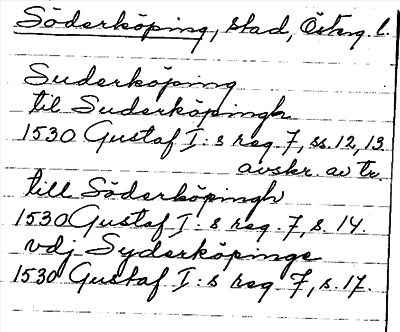 Söderköping, stad, Österg. l.
Suderköping
til Suderköpingh
1530 Gustaf I:s reg. 7, ss. 12, 13.
avskr. av tr.
till Söderköpingh
1530 Gustaf I:s reg. 7, s. 14.
vdj Syderköpinge
1530 Gustaf I:s reg 7, s. 17.